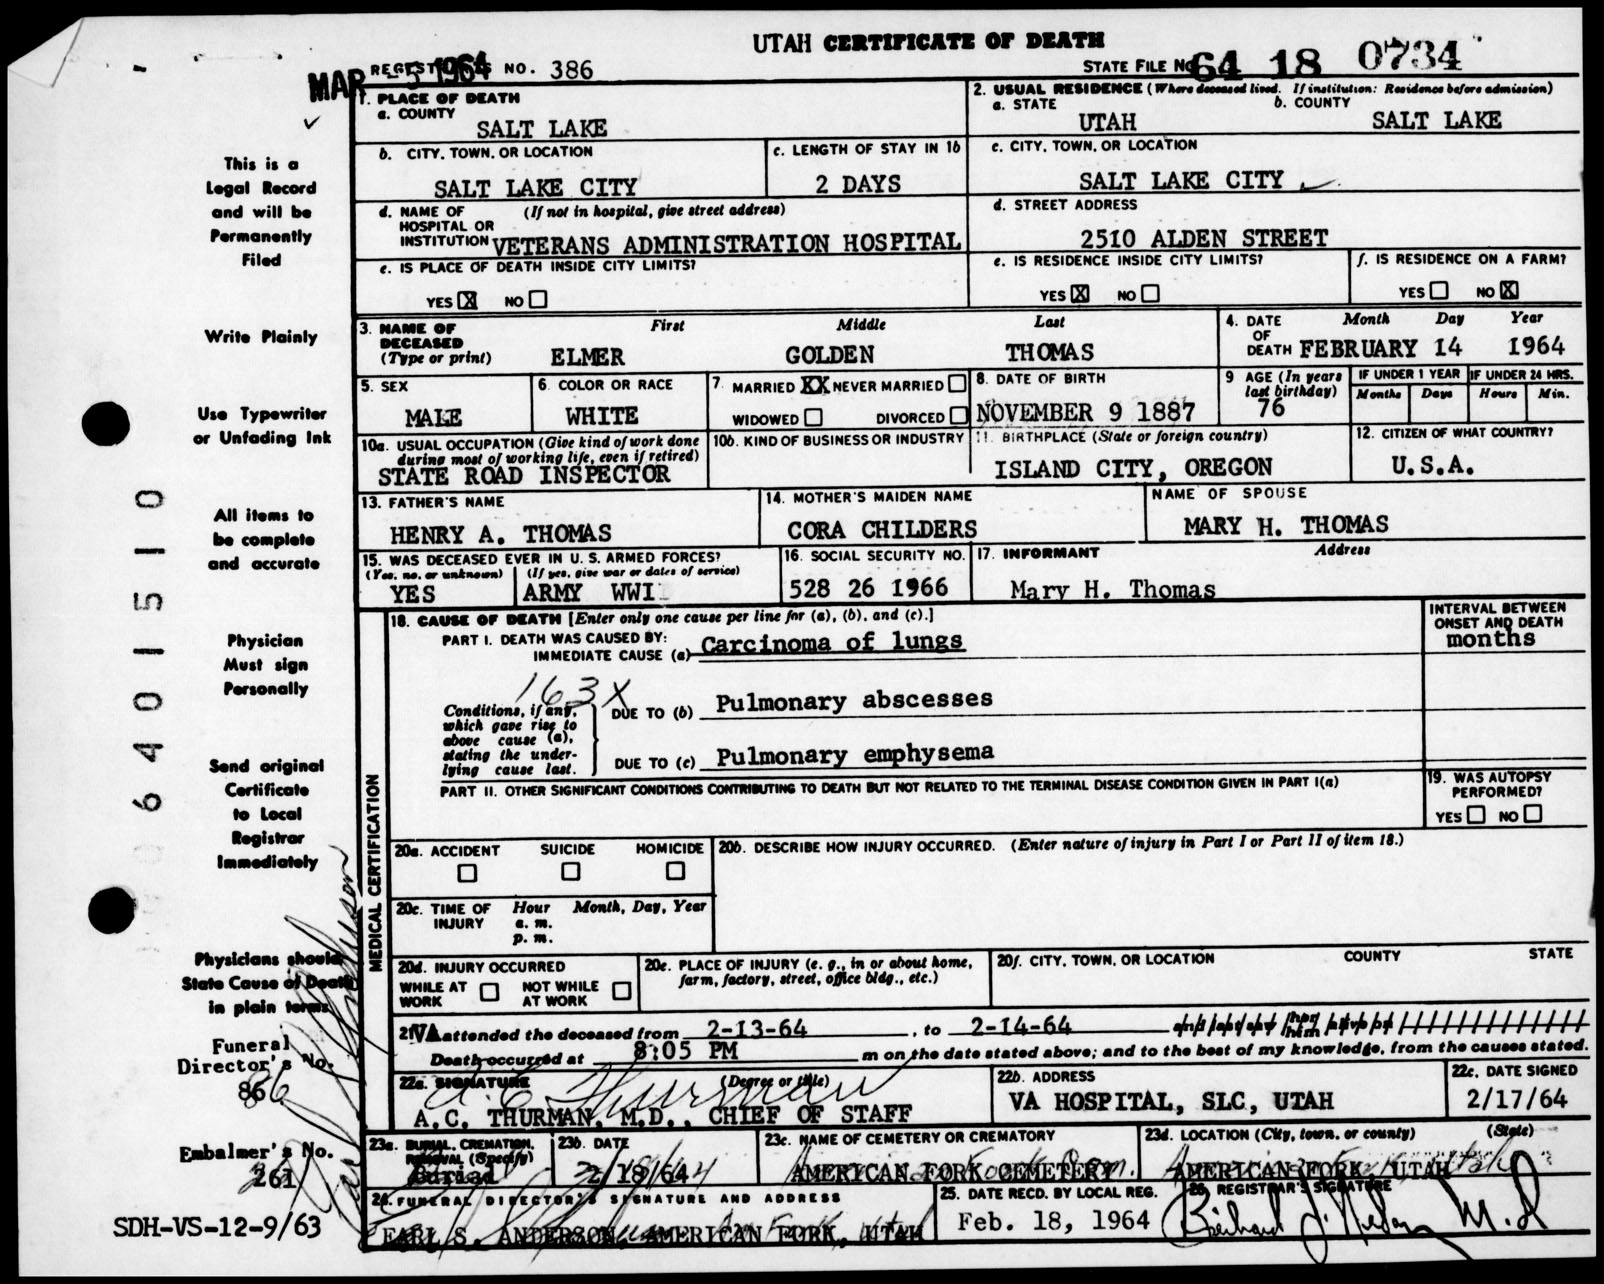 UTAH CERTIFICATE OF DEATH
MAR -5 1964
REGISTRAR'S NO. 386
STATE FILE NO. 64 18 0734
1. PLACE OF DEATH
a. COUNTY
SALT LAKE
2. USUAL RESIDENCE (Where deceased lived. If institution: Residence before admission)
a. STATE b. COUNTY
UTAH SALT LAKE
b. CITY, TOWN, OR LOCATION
SALT LAKE CITY
c. LENGTH OF STAY IN 1b
2 DAYS
c. CITY, TOWN, OR LOCATION
SALT LAKE CITY
d. NAME OF HOSPITAL OR INSTITUTION (If not in hospital, give street address)
VETERANS ADMINISTRATION HOSPITAL
d. STREET ADDRESS
2510 ALDEN STREET
e. IS PLACE OF DEATH INSIDE CITY LIMITS?
YES X NO
e. IS RESIDENCE INSIDE CITY LIMITS?
YES X NO
f. IS RESIDENCE ON A FARM?
YES NO X
3. NAME OF DECEASED (Type or print)
First Middle Last
ELMER GOLDEN THOMAS
4. DATE OF DEATH
Month Day Year
FEBRUARY 14 1964
5. SEX
MALE
6. COLOR OR RACE
WHITE
7. MARRIED XX NEVER MARRIED
WIDOWED DIVORCED
8. DATE OF BIRTH
NOVEMBER 9 1887
9 AGE (In years last birthday)
76
IF UNDER 1 YEAR IF UNDER 24 HRS.
Months Days Hours Min.
10a. USUAL OCCUPATION (Give kind of work done during most of working life, even if retired)
STATE ROAD INSPECTOR
10b. KIND OF BUSINESS OR INDUSTRY
11. BIRTHPLACE (State or foreign country)
ISLAND CITY, OREGON
12. CITIZEN OF WHAT COUNTRY?
U.S.A.
13. FATHER'S NAME
HENRY A. THOMAS
14. MOTHER'S MAIDEN NAME
CORA CHILDERS
NAME OF SPOUSE
MARY H. THOMAS
15. WAS DECEASED EVER IN U. S. ARMED FORCES?
(Yes, no, or unknown) (If yes, give war or dates of service)
YES ARMY WWI
16. SOCIAL SECURITY NO.
528 26 1966
17. INFORMANT Address
Mary H. Thomas
MEDICAL CERTIFICATION
18. CAUSE OF DEATH [Enter only one cause per line for (a), (b), and (c).]
PART I. DEATH WAS CAUSED BY:
IMMEDIATE CAUSE (a) Carcinoma of lungs
INTERVAL BETWEEN ONSET AND DEATH
months
163X
Conditions, if any, which gave rise to above cause (a), stating the underlying cause last.
DUE TO (b) Pulmonary abscesses
DUE TO (c) Pulmonary emphysema
PART II. OTHER SIGNIFICANT CONDITIONS CONTRIBUTING TO DEATH BUT NOT RELATED TO THE TERMINAL DISEASE CONDITION GIVEN IN PART I(a)
19. WAS AUTOPSY PERFORMED?
YES NO
20a. ACCIDENT SUICIDE HOMICIDE
20b. DESCRIBE HOW INJURY OCCURRED. (Enter nature of injury in Part I or Part II of item 18.)
20c. TIME OF INJURY Hour Month, Day, Year
a. m.
p. m.
20d. INJURY OCCURRED
WHILE AT WORK NOT WHILE AT WORK
20e. PLACE OF INJURY (e. g., in or about home, farm, factory, street, office bldg., etc.)
20f. CITY, TOWN, OR LOCATION COUNTY STATE
21. VA attended the deceased from 2-13-64, to 2-14-64
Death occurred at 8:05 PM m on the date stated above; and to the best of my knowledge, from the causes stated.
22a. SIGNATURE (Degree or title)
A C Thurman
A.C. THURMAN, M.D., CHIEF OF STAFF
22b. ADDRESS
VA HOSPITAL, SLC, UTAH
22c. DATE SIGNED
2/17/64
23a. BURIAL, CREMATION, REMOVAL (Specify)
Burial
23b. DATE
2/18/64
23c. NAME OF CEMETERY OR CREMATORY
AMERICAN FORK CEMETERY
23d. LOCATION (City, town, or county) (State)
AMERICAN FORK, UTAH
24. FUNERAL DIRECTOR'S SIGNATURE AND ADDRESS
EARL S. ANDERSON, AMERICAN FORK, UTAH
25. DATE RECD. BY LOCAL REG.
Feb. 18, 1964
26. REGISTRAR'S SIGNATURE
This is a
Legal Record
and will be
Permanently
Filed
Write Plainly
Use Typewriter
or Unfading Ink
All items to
be complete
and accurate
Physician
Must sign
Personally
Send original
Certificate
to Local
Registrar
Immediately
Physicians should
State Cause of Death
in plain terms
Funeral
Director's No.
86
Embalmer's No.
261
SDH-VS-12-9/63
6401510